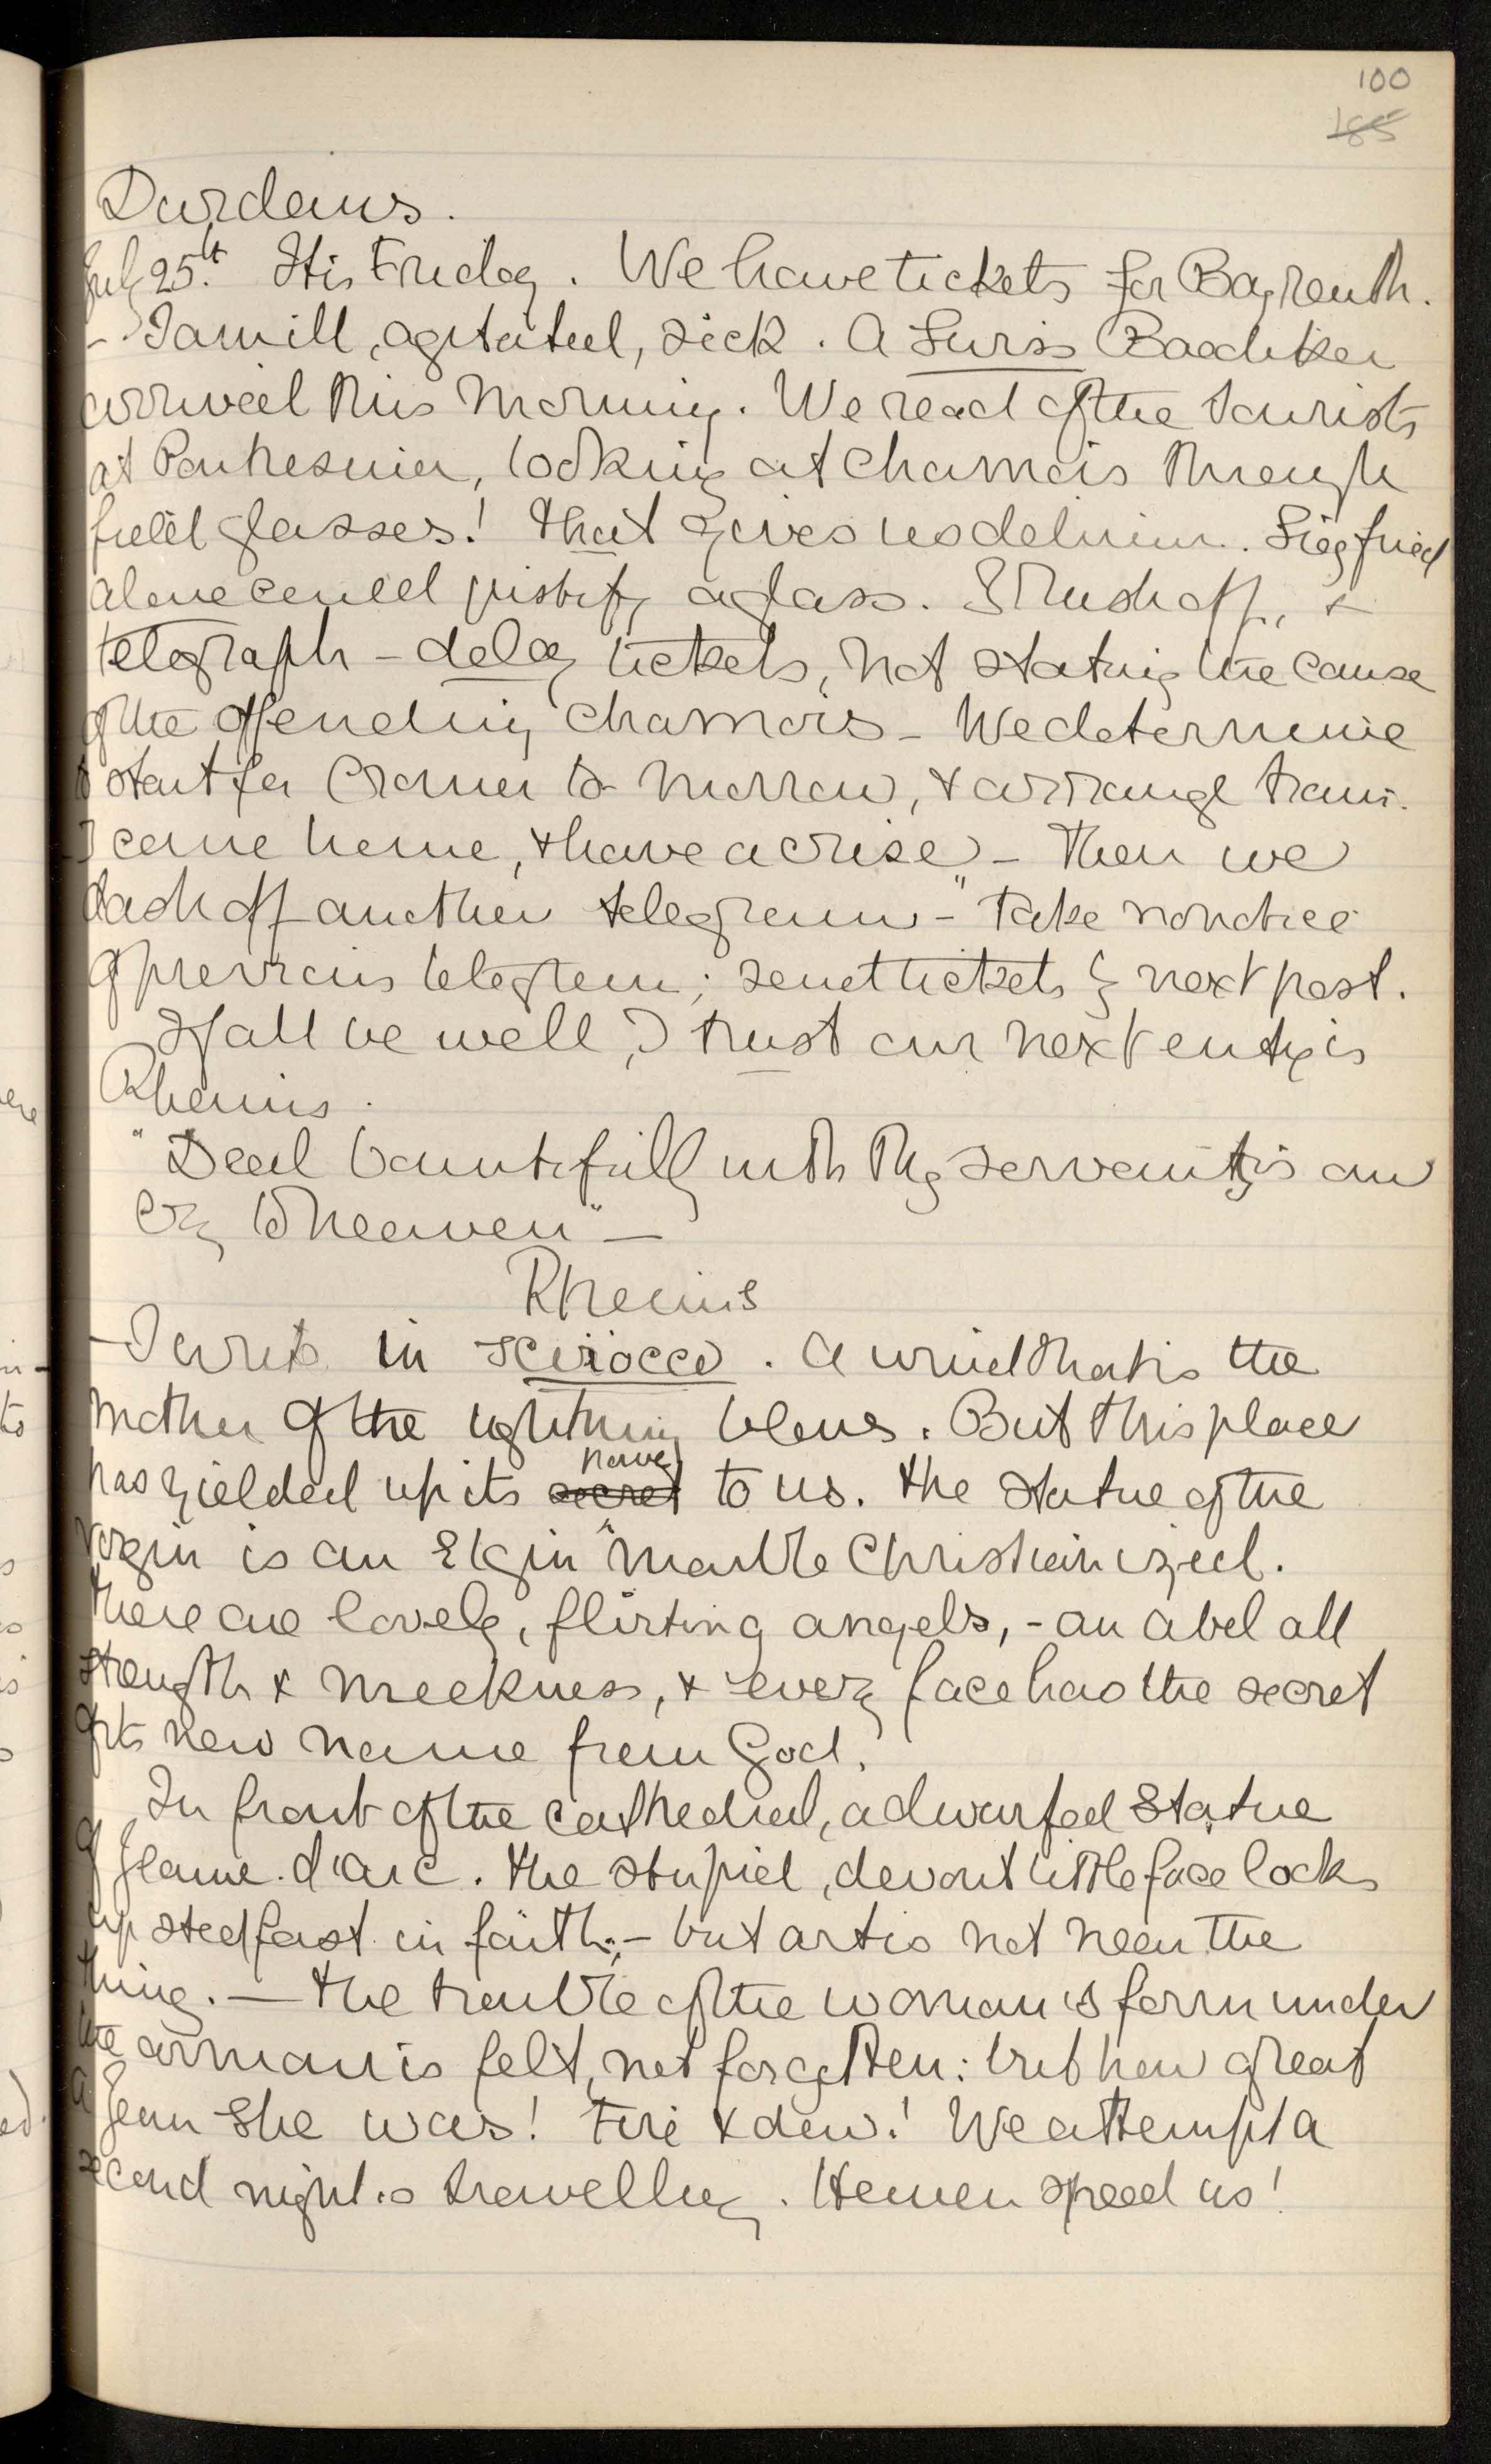 100
185
Durdans.
July 25th. It is Friday. We have tickets for Bayreuth.
- I am ill, agitated, sick. A Swiss Baedeker
arrived this morning. We read of the tourists
at Pontresina, looking at chamois through
field glasses! that gives us delirium. Siegfried
alone could justify a glass. I rush off, &
telegraph - delay tickets, not stating the cause
of the offending chamois - We determine
to start for Cromer to-morrow, & arrange train.
I come home, & have a crise - Then we
dash off another telegram - "Take no notice
of previous telegram; send tickets by next post.
If all be well, I trust our next entry is
Rheims.
"Deal bountifully with Thy servants" is our
cry to heaven" -
Rheims
- I write in scirocco. A wind that is the
mother of the lightning blows. But this place
has yielded up its secret name to us. The statue of the
Virgin is an Elgin marble Christianized.
There are lovely, flirting angels, - an Abel all
strength & meekness, & every face has the secret
of its new name from God.
In front of the cathedral, a dwarfed statue
of Jeanne d'arc. The stupid, devout little face looks
up stedfast in faith; - but art is not near the
thing. - The trouble of the woman's form under
the armour is felt, not forgotten: but how great
a Jean she was! Fire & dew! We attempt a
second night's travelling. Heaven speed us!